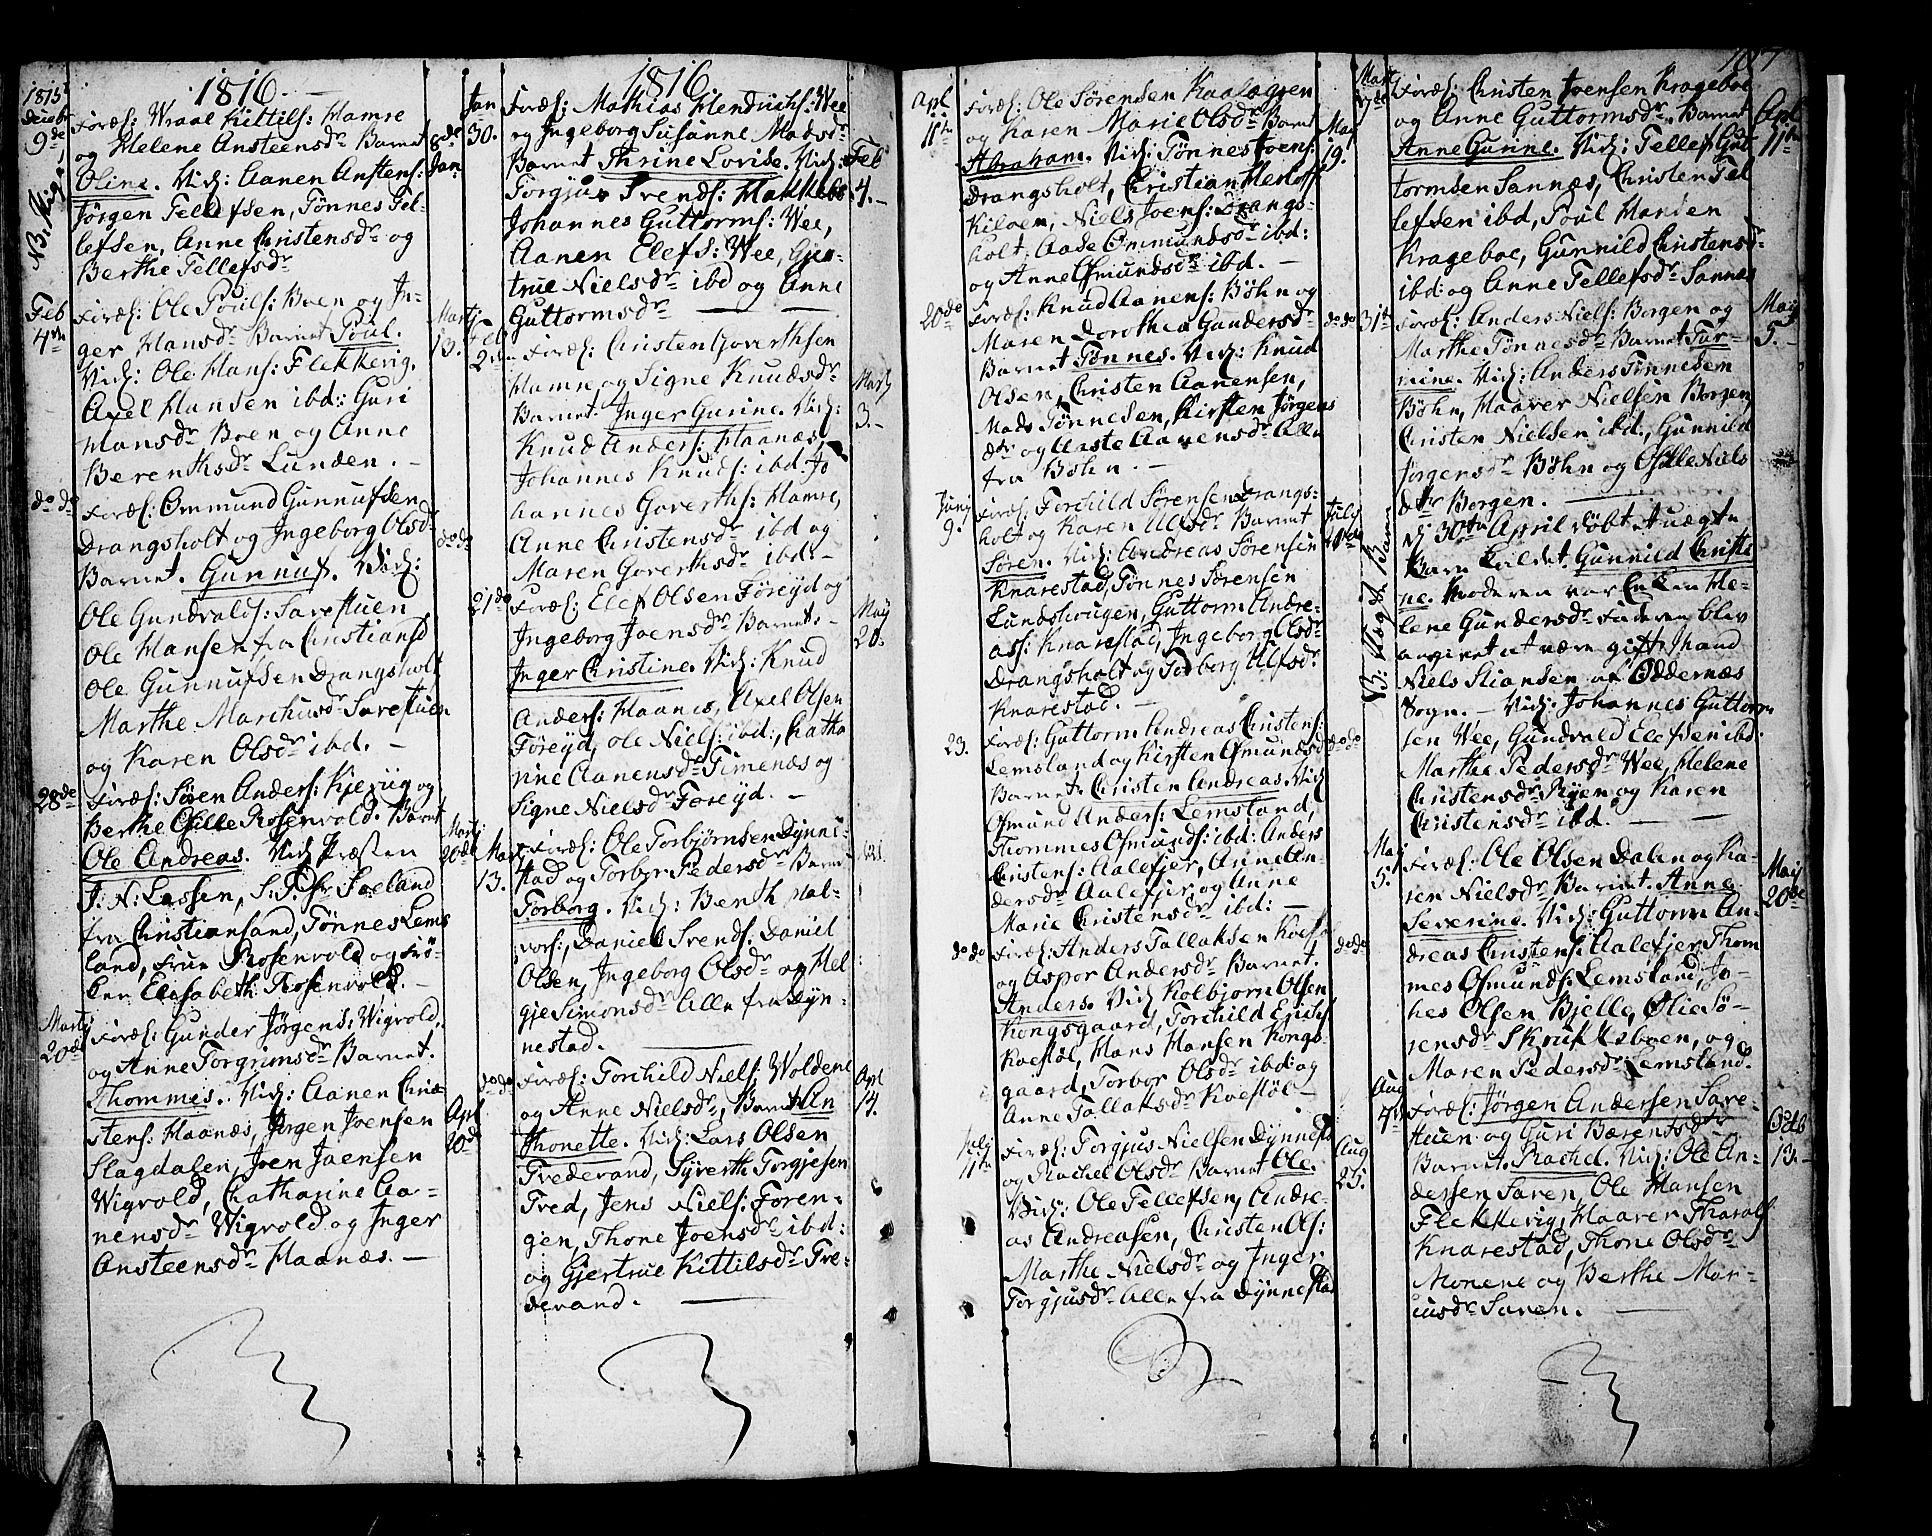 1815
Decbr
9de
1816
Foræl: Wraal Kittils: Hamre
og Helene Ansteensdr Barnet
Oline. Vid: Aanen Anstens:
Jörgen Tellefsen, Tönnes Tel-
lefsen, Anne Christensdr og
Berthe Tellefsdr
8de
Jan:
Feb
4de
Foræl: Ole Pouls: Boen og In-
ger Hansdr Barnet Poul.
Vid: Ole Hans: Flekkerig,
Axel Hansen ibd: Guri
Hansdr Boen og Anne
Berenthsdr Lunden. -
Martj
13.
do do
Foræl: Ommund Gunnufsen
Drangsholt og Ingeborg Olsdr
Barnet. Gunnuf. Vid:
Ole Gundvalds: Sarestuen
Ole Hansen fra Christiansd
Ole Gunnufsen Drangsholt
Marthe Marchusdr Sarestuen
og Karen Olsdr ibd. -
do do
28de
Foræl: Sören Anders: Kjevig og
Berthe Osille Rosenvold. Barnet
Ole Andreas. Vid: Præsten
J: N: Lassen, S:
fra Christiansand, Tönnes Lems
land, Frue Rosenvold og Frö-
ken Elisabeth Rosenvold. -
Martj
20de
Martj
20de
Foræl: Gunder Jörgens: Wigvold.
og Anne Torgrimsdr Barnet.
Thommes. Vid: Aanen Chri
stens: Haanæs, Jörgen Joensen
Slagdalen, Joen Joensen
Wigvold, Catharine Aa-
nensdr Wigvold og Inger
Ansteensdr Haanæs. -
Apl
20de
Jan
30.
1816
Foræl: Mathias Hendrichs: Wee
og Ingeborg Susanne Madsdr
Barnet Thrine Lovise. Vid:
Torgjus Svends: Hakkebo
Johannes Guttorms: Wee,
Aanen Elefs: Wee, Gjer-
true Nielsdr ibd og Anne
Guttormsdr
Feb
4. -
Feb
2
Foræl: Christen Goverthsen
Hamre og Signe Knudsdr
Barnet: Inger Gurine. Vid:
Knud Anders: Haanæs,
Johannes Knuds: ibd. Jo
hannes Goverths: Hamre,
Anne Christensdr ibd og
Maren Goverthsdr ibd. -
Martj
3. -
21de
Foræl: Elef Olsen Föreyd og
Ingeborg Joensdr Barnet. -
Inger Christine. Vid: Knud
Anders: Haanes, Axel Olsen
Föreyd, Ole Niels: ibd:, Catha
rine Aanensdr Timenæs og
Signe Nielsdr Foreyd. -
Maij
20.
Mart
13.
Foræl: Ole Torbjörnsen Dynne-
stad og Torbor Pedersdr Barnet
Torborg. Vid: Benth Hal-
vors:, Daniel Svends: Daniel
Olsen, Ingeborg Olsdr og Hel
gje Simonsdr Alle fra Dyn-
nestad.
do do
Foræl: Torchild Niels: Woldene
og Anne Nielsdr, Barnet An
thonette. Vid: Lars Olsen
Trederand, Syverth Torgjesen
Tred, Jens Niels: Foren-
gen, Thone Joensdr ibd:
og Gjertrue Kittilsdr Tre-
derand.
Apl
14.
Apl
11te
Foræl: Ole Sörensen Kaalagren
og Karen Marie Olsdr Barnet
Abraham. Vid: Tönnes Joens:
Drangsholt, Christian Herlofs
Kiloen, Niels Joens: Drangs-
holt, Aase Ommundsdr ibd:
og Anne Osmundsdr ibd. -
Maij
19.
20de
Foræl: Knud Aanens: Böhn og
Maren Dorothea Gundersdr
Barnet Tönnes. Vid: Knud
Olsen, Christen Aanensen,
Mads Tönnesen, Kirsten Jörgens
dr og Aaste Aanensdr Alle
fra Böhn. -
do do
Junij
9.
Foræl: Torchild Sörensen Drangs-
holt og Karen Ulfsdr Barnet
Sören. Vid: Andreas Sörensen
Knarestad, Tönnes Sörensen
Lundshougen, Guttorm Andre-
as: Knarestad, Ingeborg Olsdr
Drangsholt og Solberg Ulfsdr
Knarestad. -
July
23.
Foræl: Guttorm Andreas Christens:
Lemsland og Kirsten Osmundsd
Barnet. Christen Andreas. Vid
Osmund Anders: Lemsland,
Thommes Osmunds: ibd: Anders
Christens: Aalefjer, Anne An-
dersdr Aalefjer, og Anne
Marie Christensdr ibd: -
do do
do do
Foræl: Anders Tallaksen Kvefsø
og Aspor Andersdr Barnet.
Anders. Vid Kolbjorn Olsen
Kongsgaard, Torchild Erichs
Koestøl, Hans Hansen Kongs
gaard, Torbor Olsdr ibd: og
Anne Tallaksdr Kvestøl -
do do
Julij
11te
Foræl: Torgjus Nielsen Dynnesta
og Rachel Olsdr Barnet Ole.
Vid: Ole Tellefsen, Andre-
as Andreasen, Christen Ols:
Marthe Nielsdr og Inger
Torgjusdr Alle fra Dynnestad
Aug
25.
Mart
17de
Foræl: Christen Joensen Krageboe
og Anne Guttormsdr. Barnet
Anne Gunne. Vid: Tellef Gut
tormsen Sannæs, Christen Tel
lefsen ibd, Poul Hansen
Krageboe, Gunnild Christensdr
ibd: og Anne Tellefsdr Sannæs
Apl
11te
31te
Foræl: Anders Niels: Borgen og
Marthe Tönnesdr Barnet Tor-
mine. Vid: Anders Tönnesen
Böhn, Haaver Nielsen Borgen
Christen Nielsen ibd:, Gunnild
Jörgensdr Böhn og Osille Niels
dtr Borgen.
Maij
5. -
NB: Uægte Barn
dj 30te April döbt et uægte
Barn kaldet. Gunnild Christi
ne. Moderen var Enken He-
lene Gundersdr Faderen blev
angivet at være gift Mand
Niels Stiansen af Oddernæs
Sogn. - Vid: Johannes Guttorm
sen Wee, Gundvald Elefsen ibd:
Marthe Pedersdr Wee, Helene
Christensdr Ryen og Karen
Christensdr ibd.
Maj
5.
Foræl: Ole Olsen Dalen og Ka-
ren Nielsdr Barnet. Anne
Severine. Vid: Guttorm An-
dreas Christens: Aalefjer, Thom
mes Osmunds: Lemsland, Jo-
hes Olsen Bjelle, Olie Sö-
rensdr Skrukkeboen, og
Maren Pedersdr Lemsland.
Maij
20de
Aug
4de
Foræl: Jörgen Andersen Sare-
stuen og Guri Bærentsdr
Barnet. Rachel. Vid: Ole An-
dersen Saren, Ole Hansen
Flekkerig, Haaver Tharals
Knarestad, Thone Olsdr
Monene og Berthe Mar-
cusdr Saren.
Octb
13. -